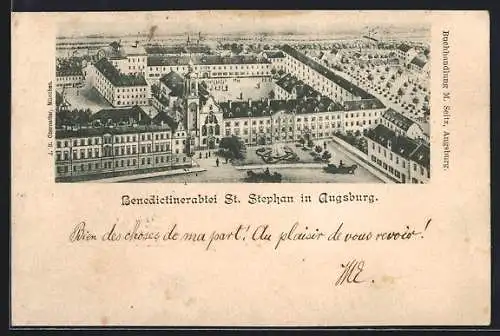 J. B. Obernetter, München.
Buchhandlung M. Seitz, Augsburg.
Benedictinerabtei St. Stephan in Augsburg.
Bien des choses de ma part! Au plaisir de vous revoir!
ME.